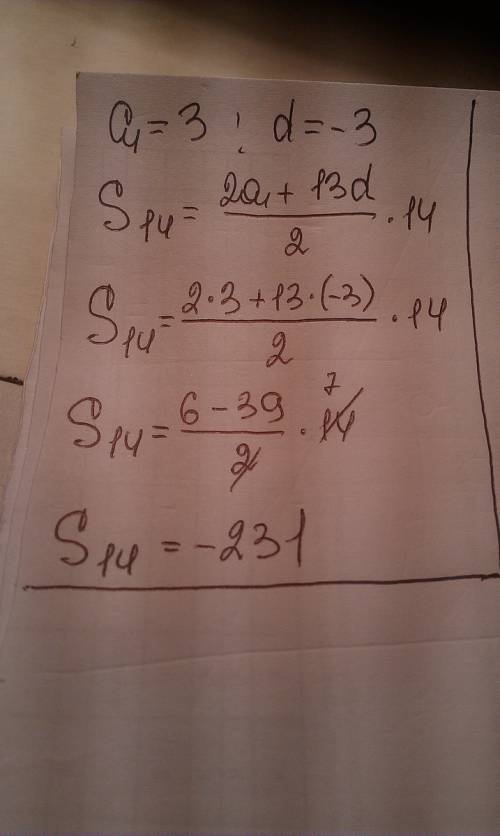 a₁ = 3 ; d = -3
S₁₄ = (2a₁ + 13d)/2 · 14
S₁₄ = (2·3 + 13·(-3))/2 · 14
S₁₄ = (6 - 39)/2 · 14 7
S₁₄ = -231